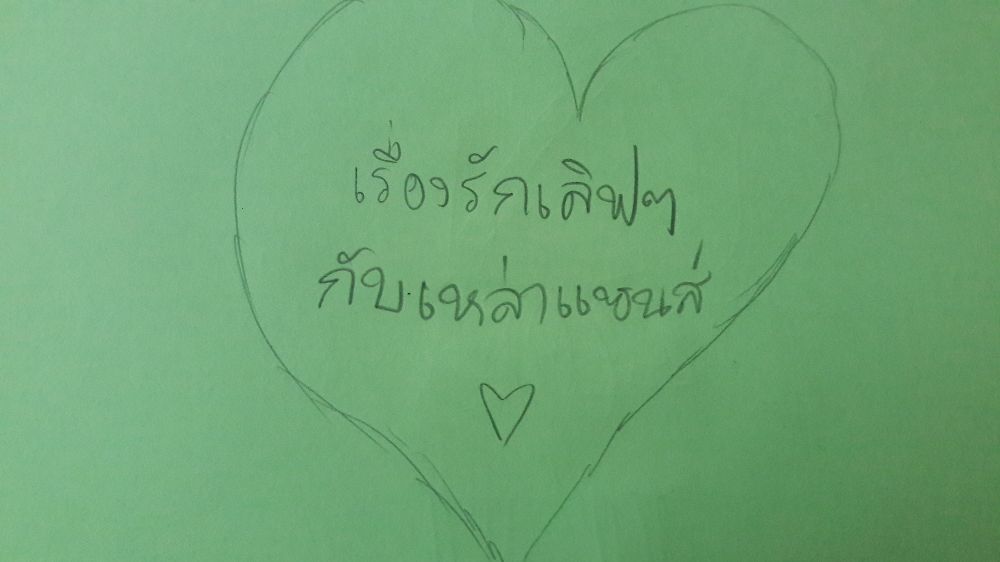 เรื่องรักเลิฟๆ
กับเหล่าแซนส์